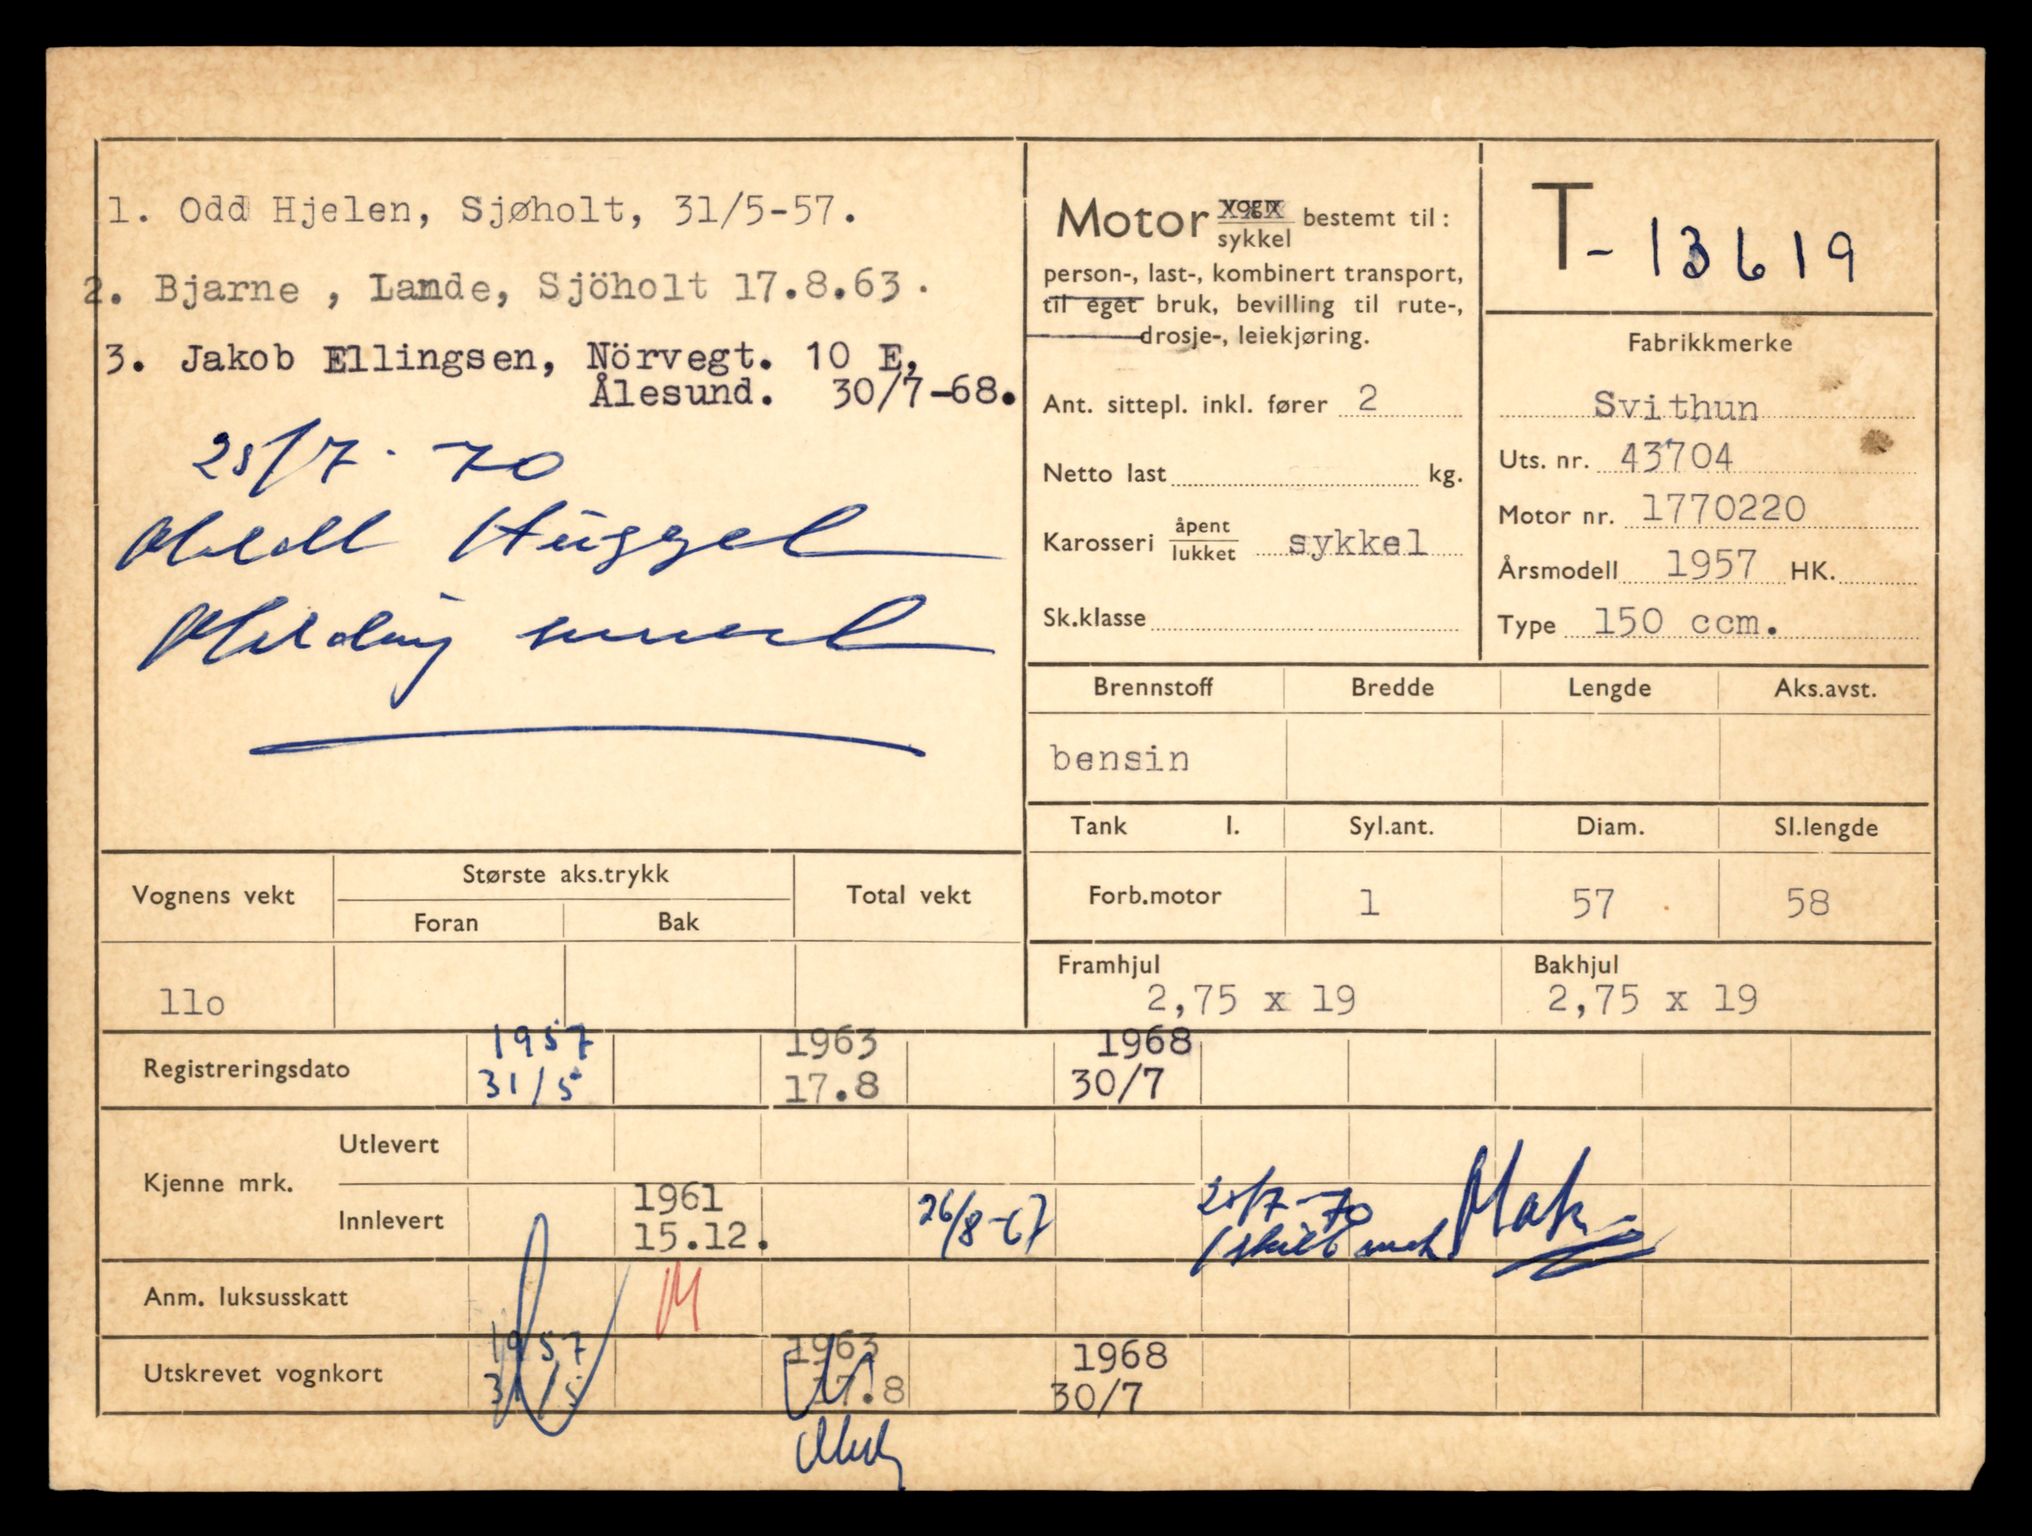 1. Odd Hjelen, Sjøholt, 31/5-57.
2. Bjarne , Lande, Sjöholt 17.8.63.
3. Jakob Ellingsen, Nörvegt. 10 E,
Ålesund. 30/7-68.
25/7-70
Meldt
Melding
Motor vogn bestemt til:
sykkel
person-, last-, kombinert transport,
til eget bruk, bevilling til rute-,
drosje-, leiekjøring.
Ant. sittepl. inkl. fører 2
Netto last kg.
Karosseri åpent
lukket sykkel
Sk.klasse
T-13619
Fabrikkmerke
Svithun
Uts. nr. 43704
Motor nr. 1770220
Årsmodell 1957 HK.
Type 150 ccm.
Brennstoff Bredde Lengde Aks.avst.
bensin
Tank l. Syl.ant. Diam. Sl.lengde
Forb.motor 1 57 58
Framhjul Bakhjul
2,75 x 19 2,75 x 19
Vognens vekt Største aks.trykk Total vekt
Foran Bak
11o
Registreringsdato 1957 1963 1968
31/5 17.8 30/7
Kjenne mrk. Utlevert
Innlevert 1961
15.12. 26/8-67 25/7-70
skilt
Anm. luksusskatt M
Utskrevet vognkort 1957 1963 1968
31/5 17.8 30/7